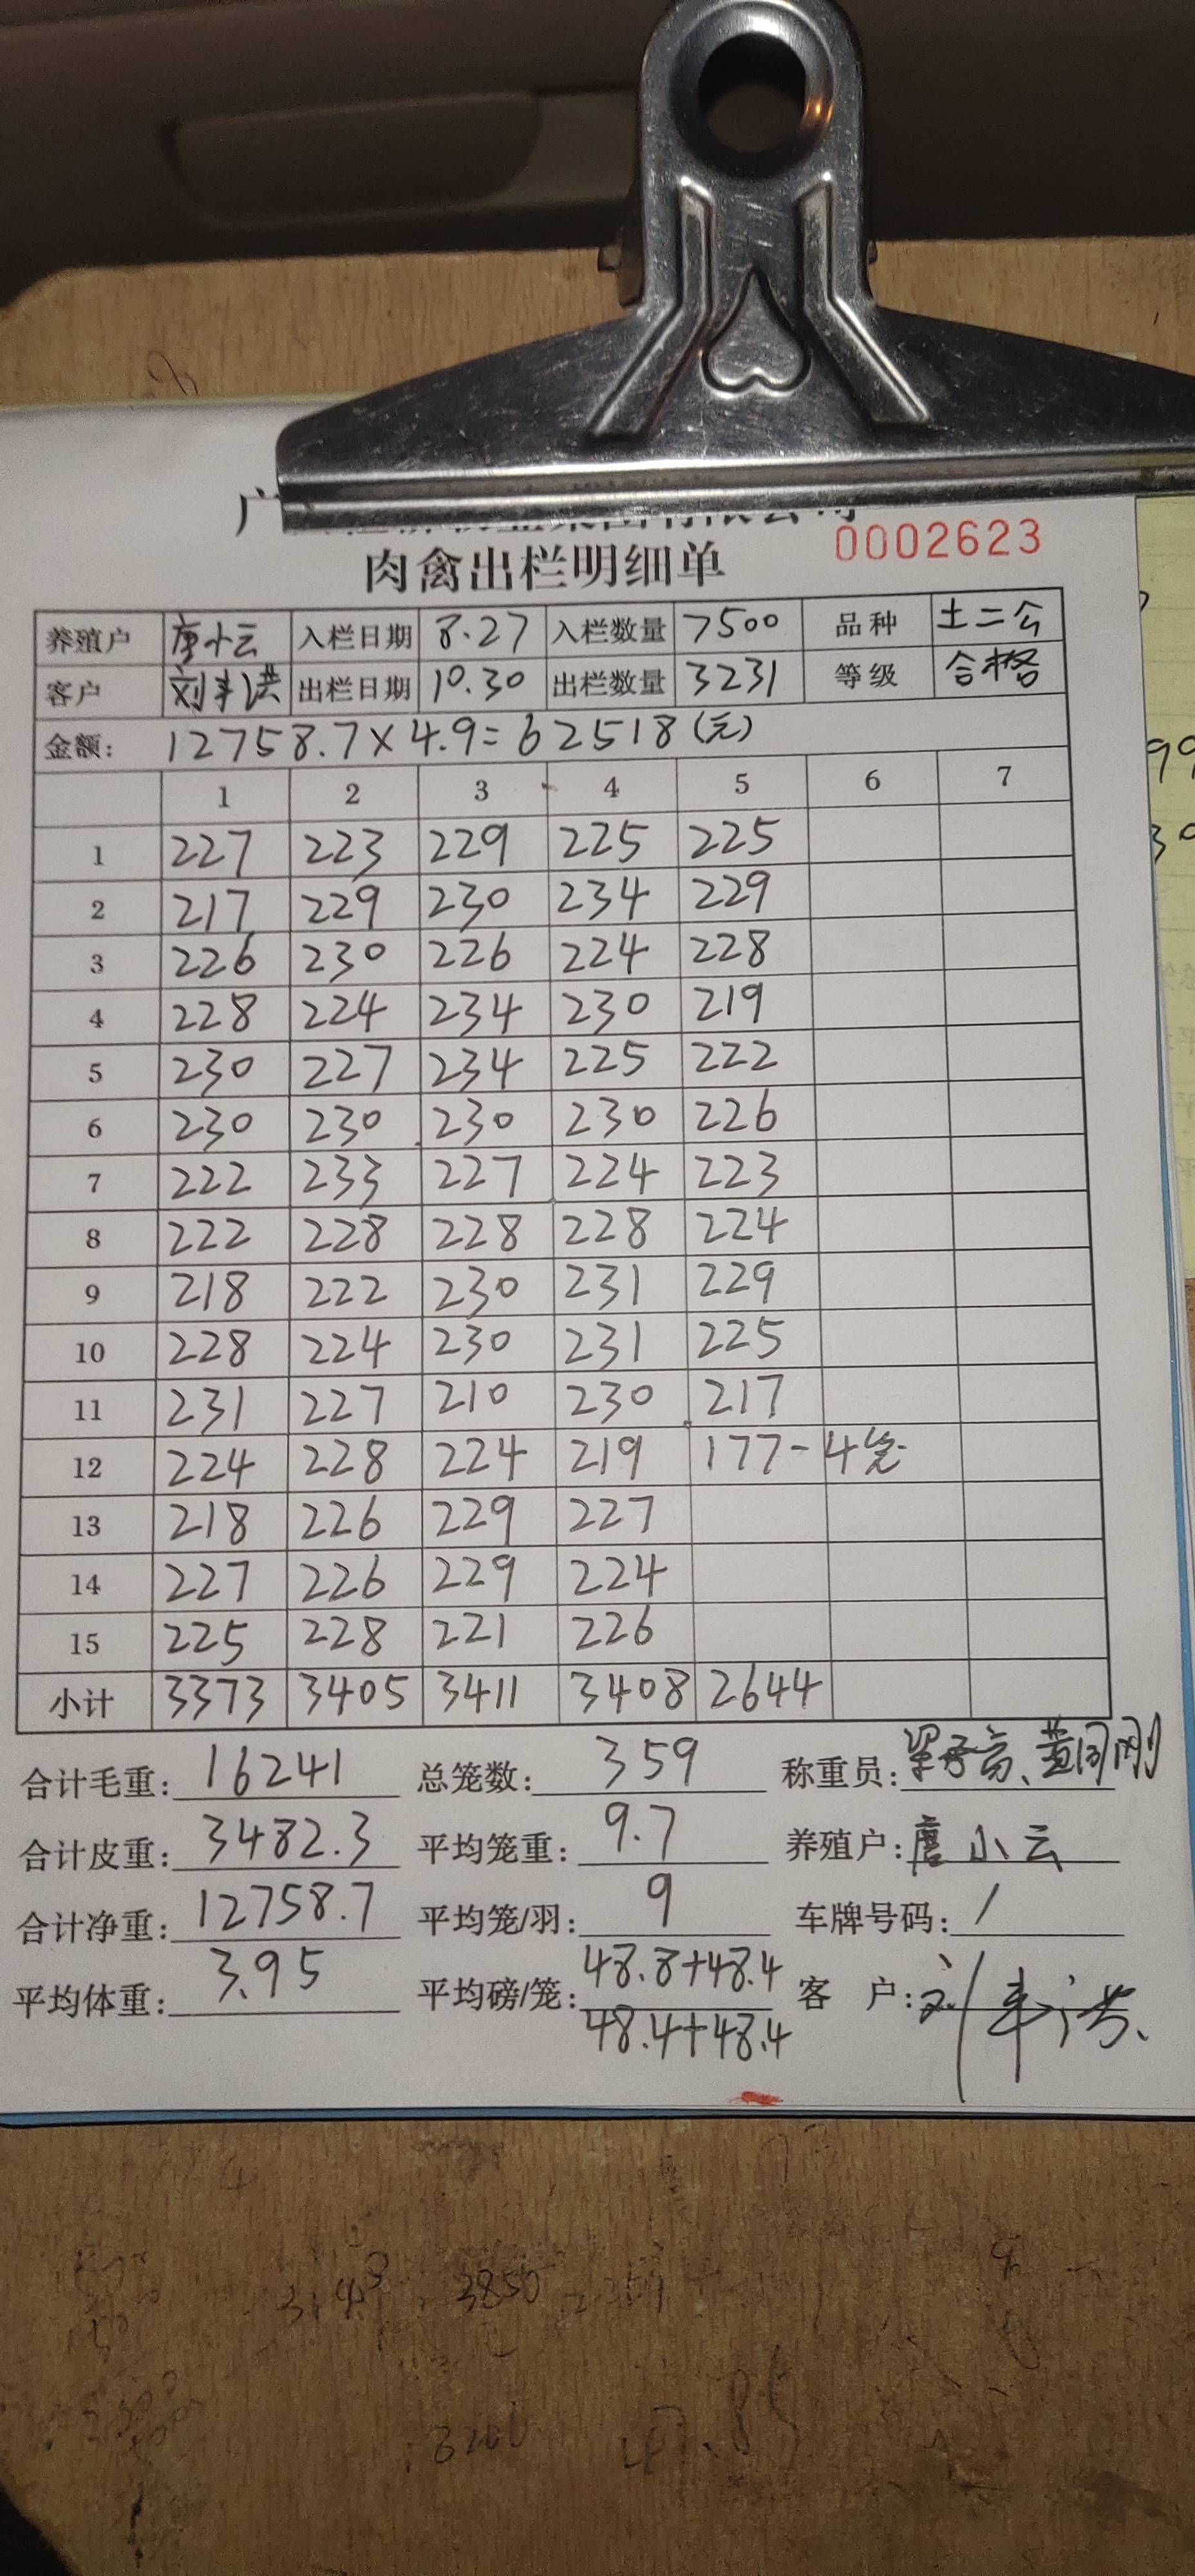 肉禽出栏明细单 0002623
养殖户 唐小云 入栏日期 8.27 入栏数量 7500 品种 土二公
客户 刘丰洪 出栏日期 10.30 出栏数量 3231 等级 合格
金额: 12758.7×4.9=62518(元)
1 2 3 4 5 6 7
1 227 223 229 225 225
2 217 229 230 234 229
3 226 230 226 224 228
4 228 224 234 230 219
5 230 227 234 225 222
6 230 230 230 230 226
7 222 233 227 224 223
8 222 228 228 228 224
9 218 222 230 231 229
10 228 224 230 231 225
11 231 227 210 230 217
12 224 228 224 219 177-4笼
13 218 226 229 227
14 227 226 229 224
15 225 228 221 226
小计 3373 3405 3411 3408 2644
合计毛重: 16241 总笼数: 359 称重员:
合计皮重: 3482.3 平均笼重: 9.7 养殖户: 唐小云
合计净重: 12758.7 平均笼/羽: 9 车牌号码: /
平均体重: 3.95 平均磅/笼: 48.8+48.4 客 户: 刘丰洪
48.4+48.4